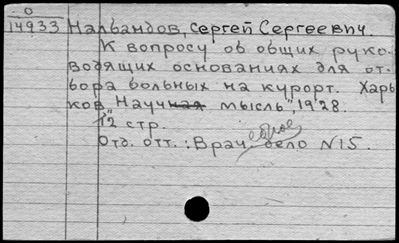 0
14933 Налбандов, Сергей Сергеевич.
К вопросу об общих руко-
водящих основаниях для от-
бора больных на курорт. Харь-
ков, "Научная мысль", 1928.
12 стр.
Отд. отт.: Врач. дело N15.